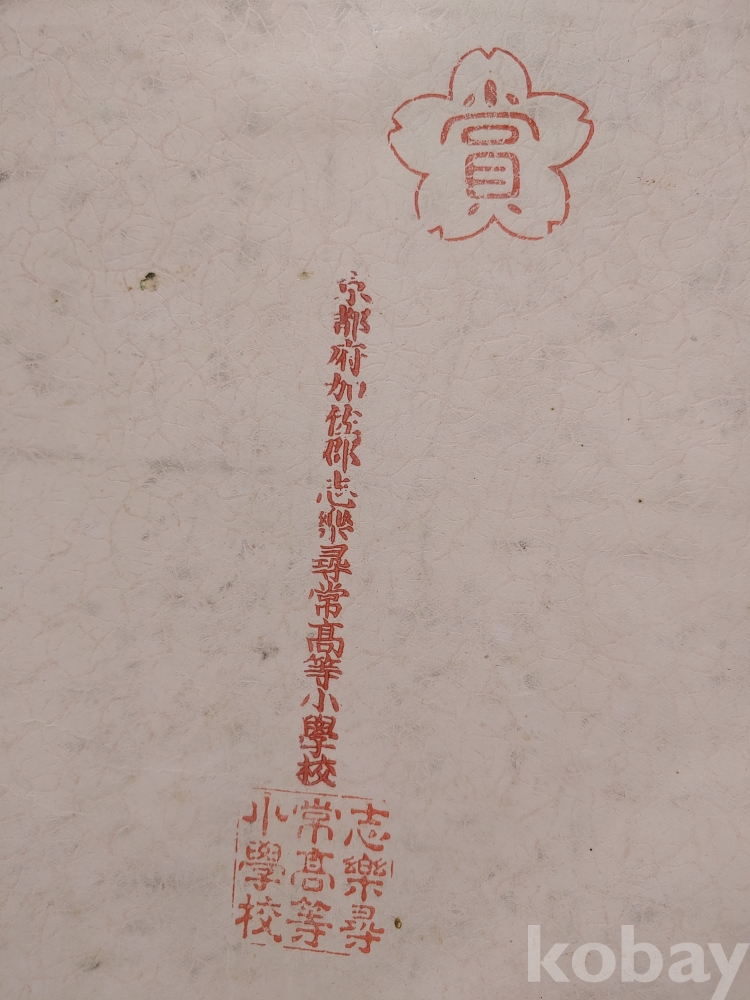 賞
京都府加佐郡志樂尋常高等小學校
志樂尋
常高等
小學校
kobay